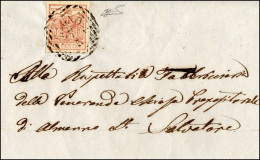 Alla Rispettabile Fabbriceria
della Veneranda Chiesa Prepositurale
di Almenno St. Salvatore